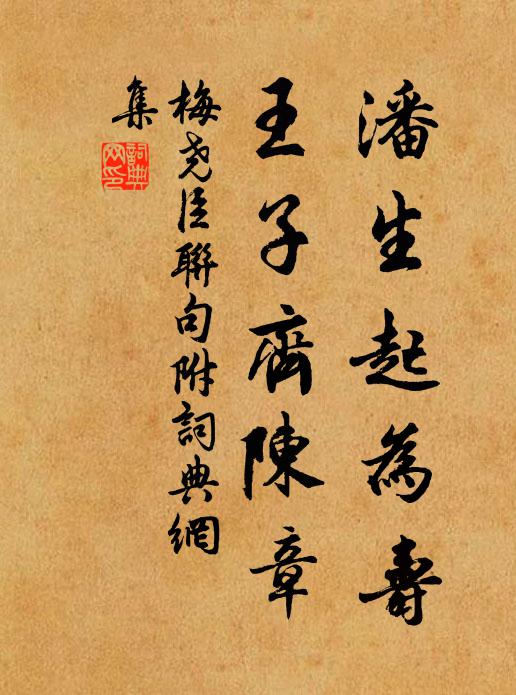 潘生起為壽
王子齊陳章
梅堯臣聯句附詞典網
集
詞典網印